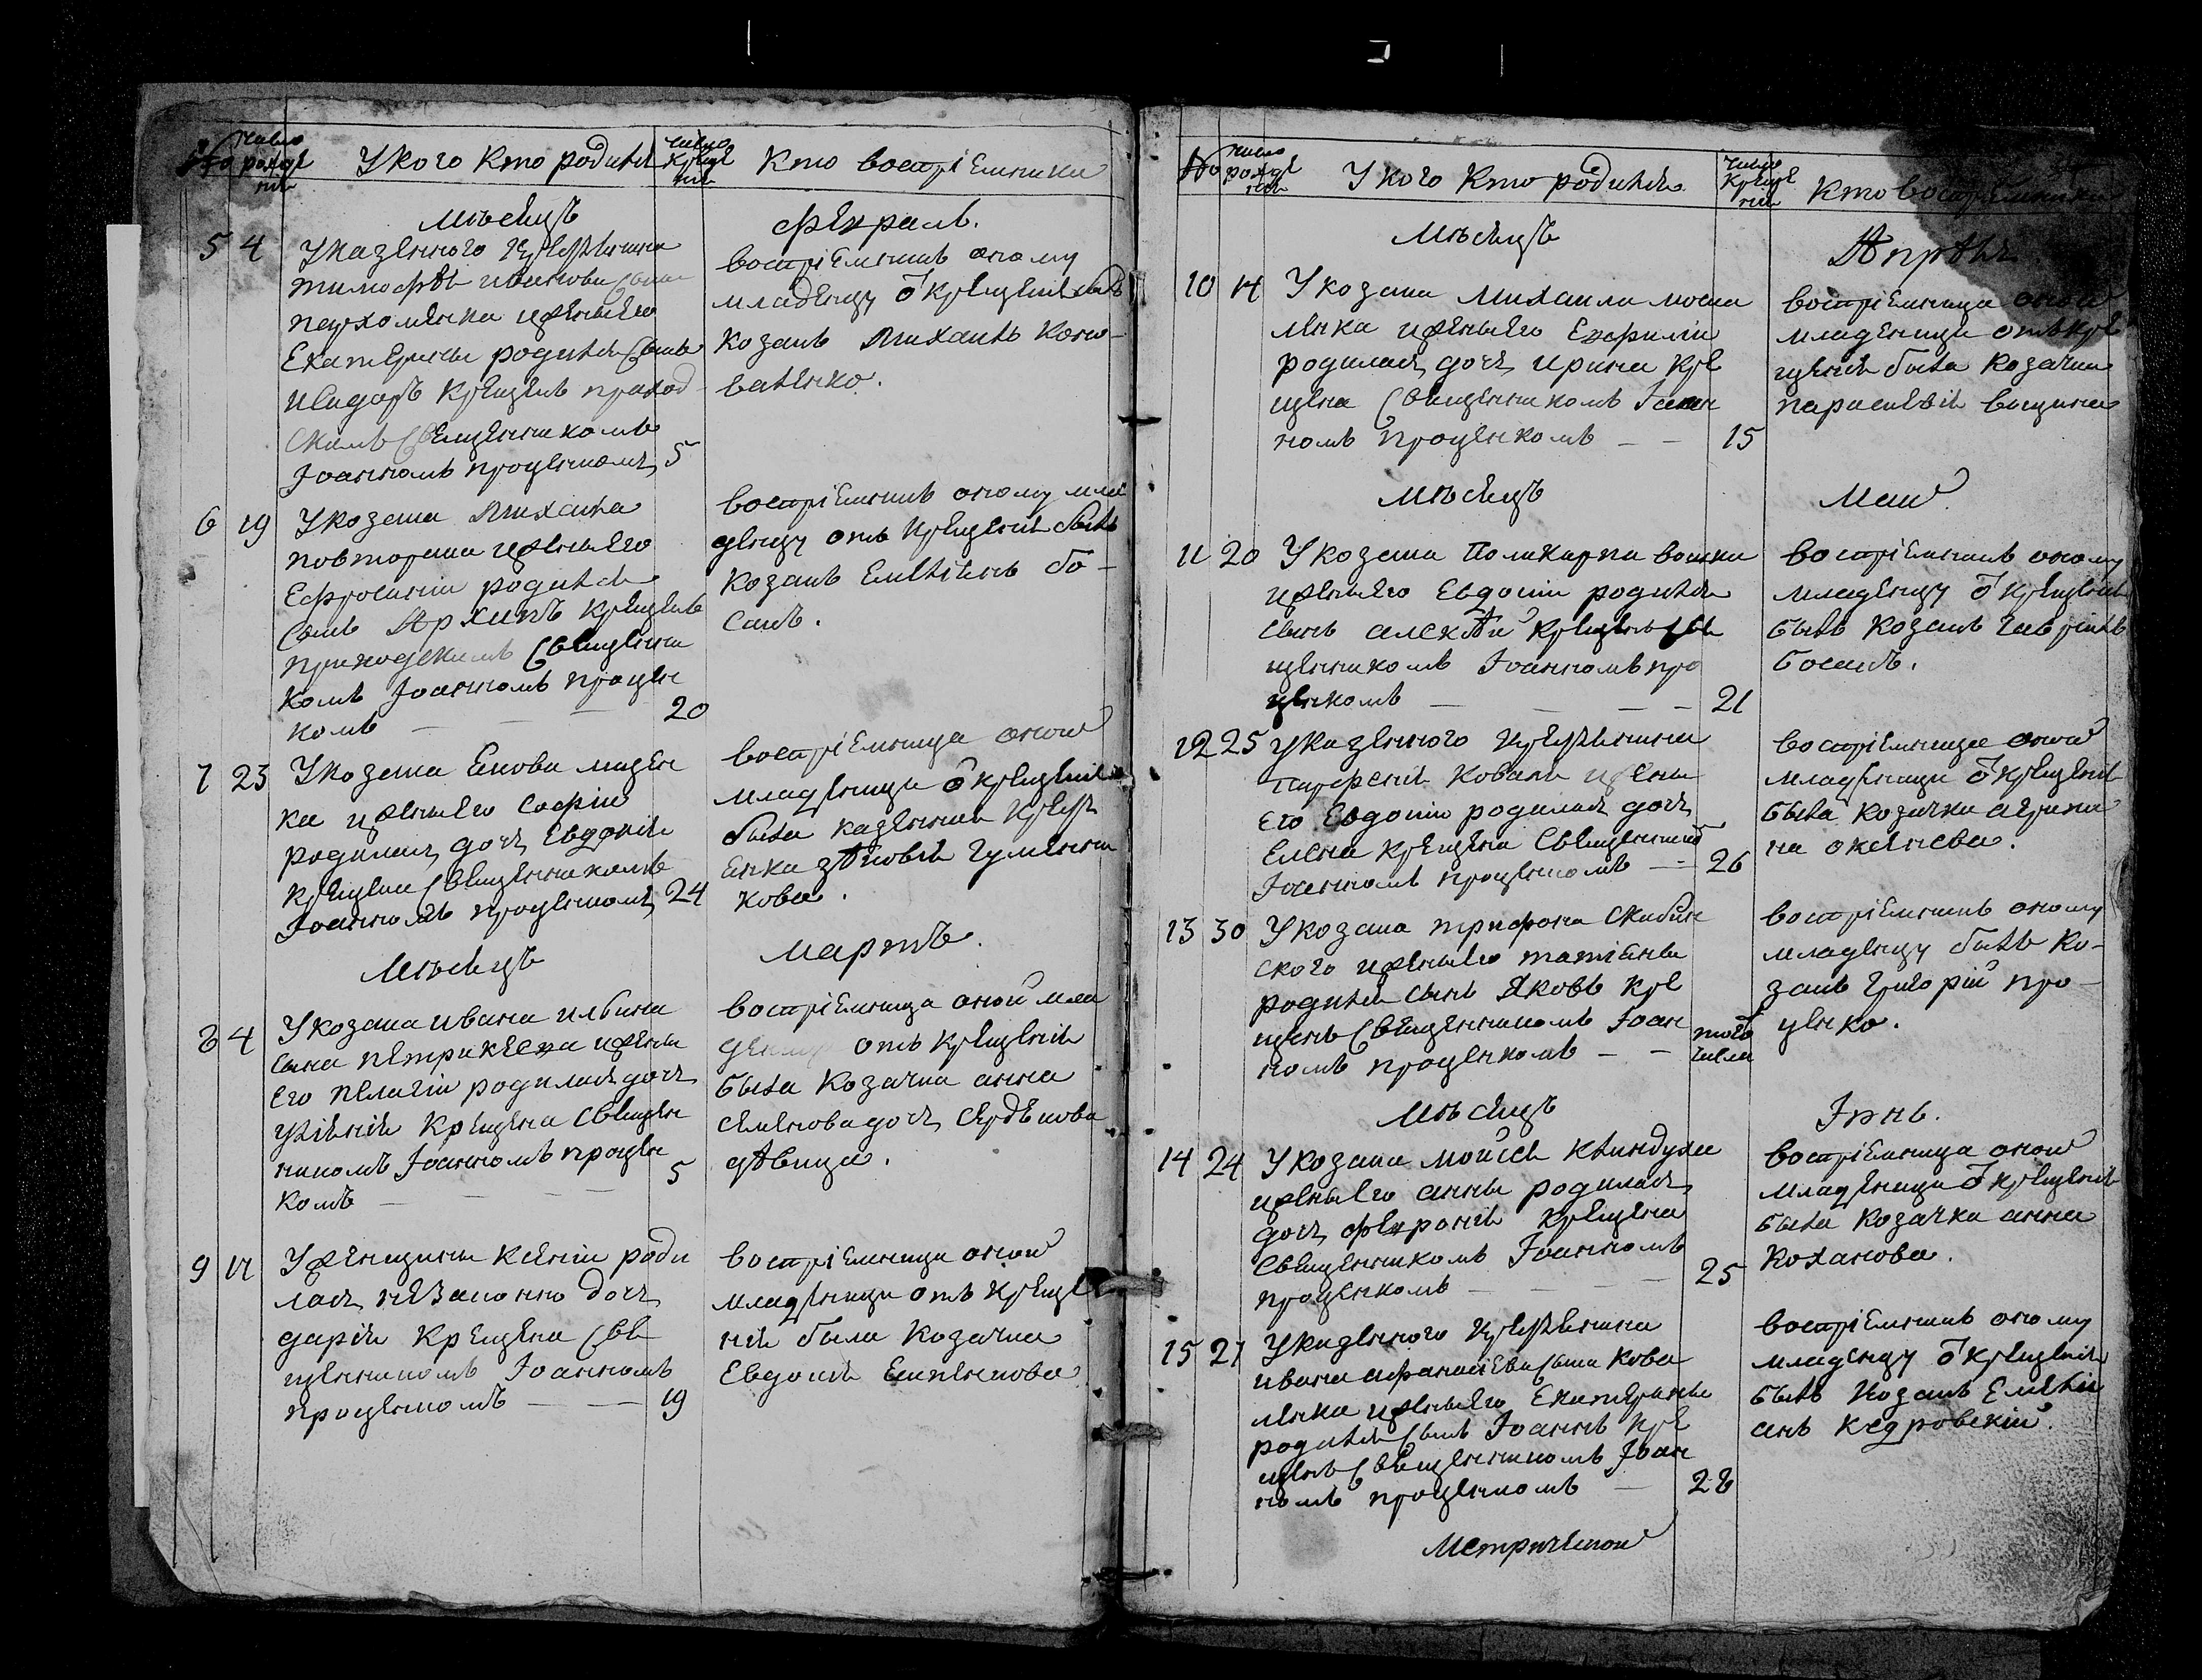 № число рожде нія
У кого кто родился
число креще нія
Кто воспріемники
мѣсяцъ
февраль.
5 4
Указенного крестьянина
тимофѣя иванова сына
пархоменка ижены его
Екатерины родился сынъ
исидоръ крещенъ приход
скимъ священникомъ
Іоанномъ проценкомъ 5
воспріемникъ оному
младенцу ѿ крещенія былъ
козакъ михаилъ коно-
валенко.
6 19
Укозака михаила
повторака ижены его
Ефросиніи родился
сынъ Архипъ крещенъ
приходскимъ священни
комъ Іоанномъ процен
комъ — — — 20
воспріемникъ оному мла
денцу отъ крещенія былъ
козакъ Емеліянъ бо-
сакъ.
7 23
Укозака
ка ижены его софіи
родилась дочь Евдокія
крещена священникомъ
Іоанномъ проценкомъ 24
воспріемница оной
младеницы ѿ крещенія
была казенная крестя
анка зѣновія гуменни
кова.
мѣсяцъ
мартъ.
8 4
Укозака ивана ильина
сына петрикеева ижены
его пелагіи родилась дочь
уліянія крещена священ
никомъ Іоанномъ процен
комъ — — — 5
воспріемница оной мла
отъ крещенія
была козачка анна
семенова дочь сердюкова
дѣвица.
9 17
Уженщины ксеніи роди
лась незаконно дочь
дарія крещена свя
щенникомъ Іоанномъ
проценкомъ — — 19
воспріемница оной
младеницы отъ креще
нія была козачка
Евдокія
№ число рожде нія
У кого кто родился
число креще нія
Кто воспріемники
мѣсяцъ
Апрѣль
10 14
Укозака михаила моска
ленка ижены его Евфиміи
родилась дочь ирина кре
щена священникомъ Іоан
номъ проценкомъ — — 15
воспріемница оной
младеницы отъ кре
щенія была козачка
параскевія
мѣсяцъ
Маій
11 20
Укозака Поликарпа
ижены его Евдокіи родился
сынъ алексѣй крещенъ свя
щенникомъ Іоанномъ про
ценкомъ — — — 21
воспріемникъ оному
младенцу ѿ крещенія
былъ козакъ гавріилъ
босакъ.
12 25
Указенного крестьянина
парфенія коваля ижены
его Евдокіи родилась дочь
Елена крещена священникомъ
Іоанномъ проценкомъ — 26
воспріемница оной
младеницы ѿ крещенія
была козачка агрипи
на
13 30
Укозака трифона скибин
ского ижены его татіаны
родился сынъ Яковъ кре
щенъ священникомъ Іоан
номъ проценкомъ — — того числа
воспріемникъ оному
младенцу былъ ко-
закъ григорій про-
ценко.
мѣсяцъ
Іюнь.
14 24
Укозака моисея клиндуха
ижены его анны родилась
дочь февронія крещена
священникомъ Іоанномъ
проценкомъ — — 25
воспріемница оной
младеницы ѿ крещенія
была козачка анна
коханова.
15 27
Указенного крестьянина
ивана афанасіева сына кова
ленка ижены его Екатерины
родился сынъ Іоаннъ кре
щенъ священникомъ Іоан
номъ проценкомъ — 28
воспріемникъ оному
младенцу ѿ крещенія
былъ козакъ Емелія
анъ кедровскій.
Метрической